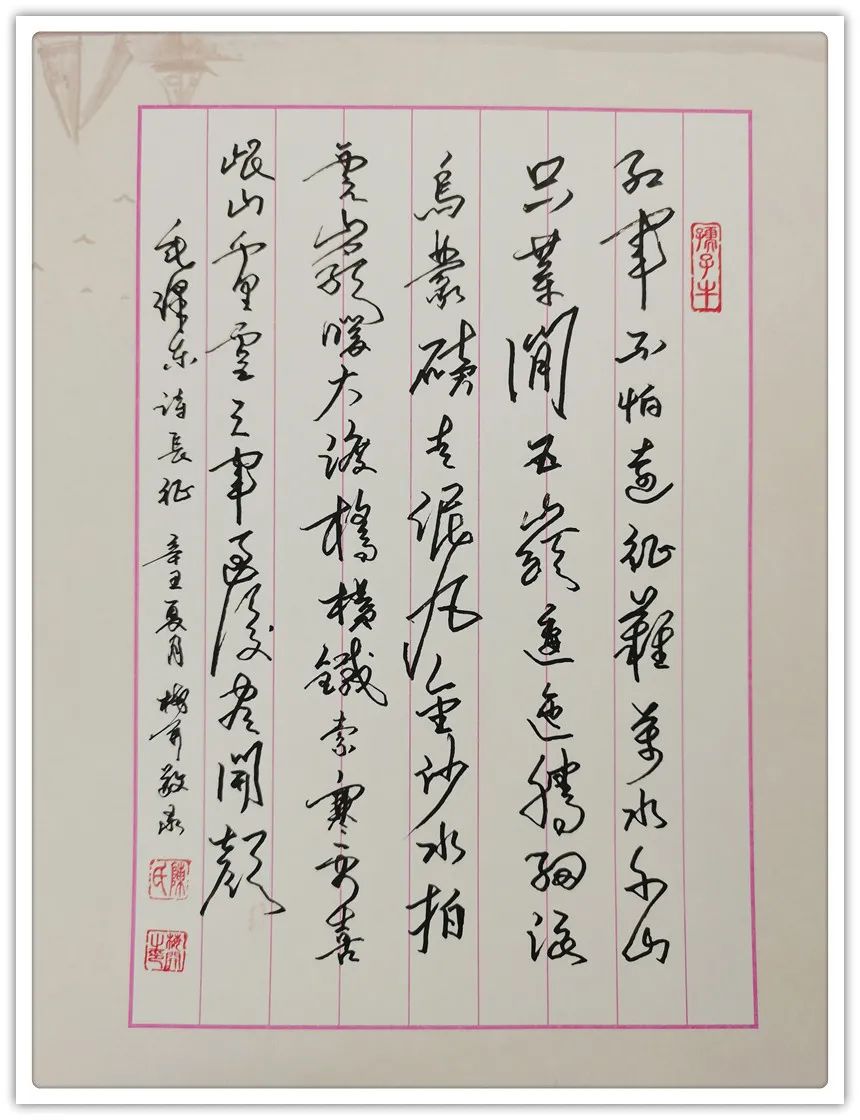 孺子牛
紅軍不怕遠征難萬水千山
只等閒五嶺逶迤騰細浪
烏蒙走泥丸金沙水拍
雲暖大渡橋橫鐵索寒更喜
岷山千里雪三軍過後盡開顏
毛澤東詩長征 辛丑夏月 梅敬录
陳氏